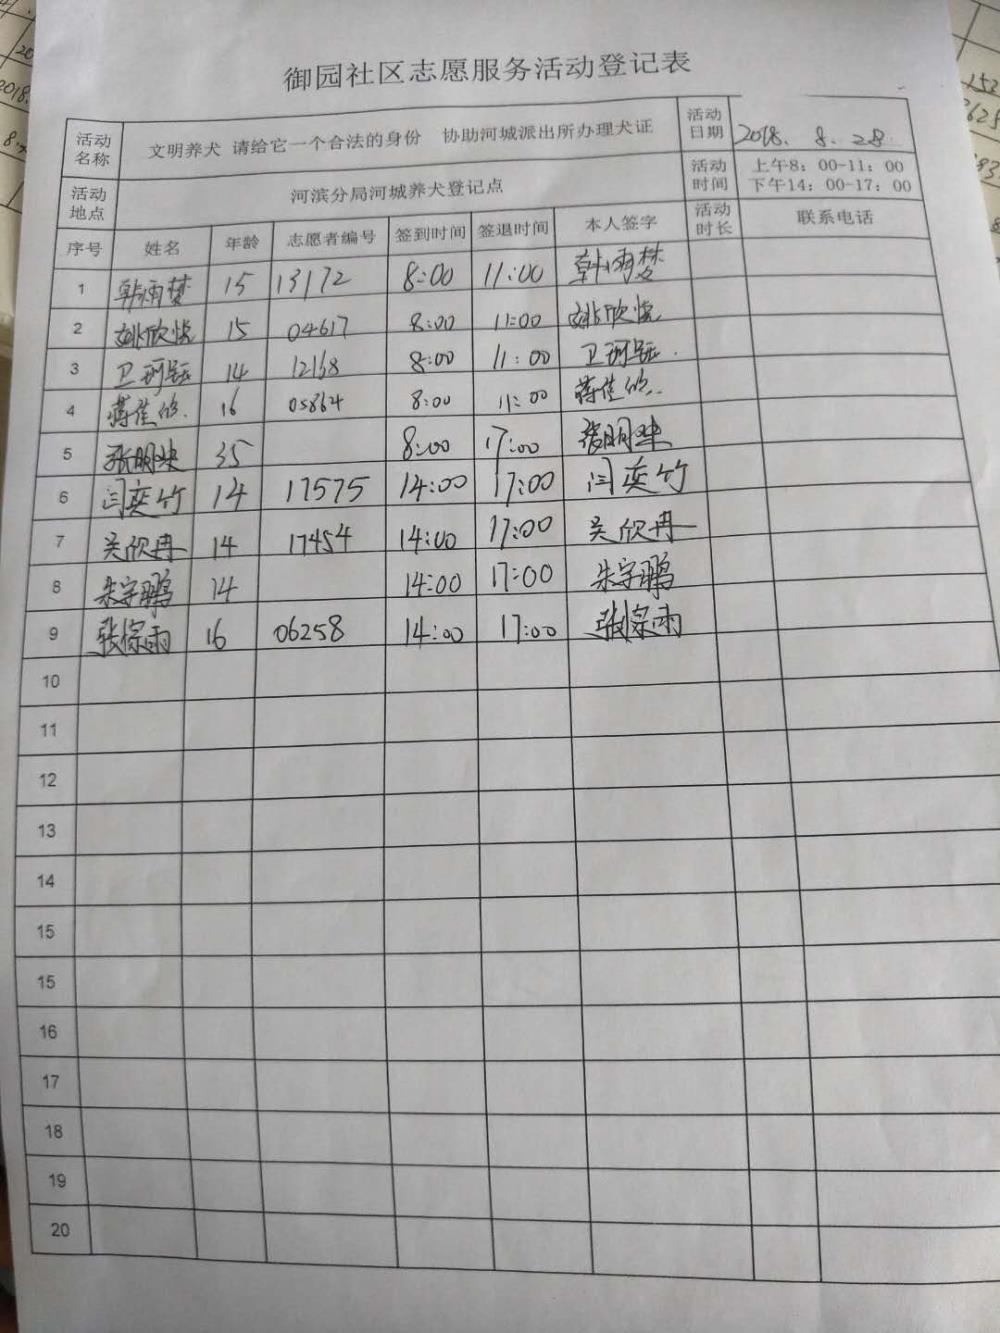 御园社区志愿服务活动登记表
活动名称 文明养犬 请给它一个合法的身份 协助河城派出所办理犬证 活动日期 2018. 8. 28.
活动地点 河滨分局河城养犬登记点 活动时间 上午8：00-11：00
下午14：00-17：00
序号 姓名 年龄 志愿者编号 签到时间 签退时间 本人签字 活动时长 联系电话
1 韩雨梦 15 13172 8:00 11:00 韩雨梦
2 姚欣悦 15 04617 8:00 11:00 姚欣悦
3 卫珂钰 14 12138 8:00 11:00 卫珂钰
4 蒋佳 16 05864 8:00 11:00 蒋佳
5 张明 35 8:00 17:00 张明
6 闫奕竹 14 17575 14:00 17:00 闫奕竹
7 吴欣冉 14 17454 14:00 17:00 吴欣冉
8 朱宇鹏 14 14:00 17:00 朱宇鹏
9 张惊雨 16 06258 14:00 17:00 张惊雨
10
11
12
13
14
15
15
16
17
18
19
20